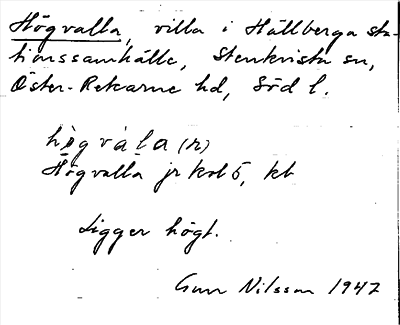 Högvalla, villa i Hällberga sta-
tionssamhälle, Stenkvista sn,
Öster-Rekarne hd, Söd l.
högvàla (n)
Högvalla jr kol 5, kb
Ligger högt.
Gun Nilsson 1947